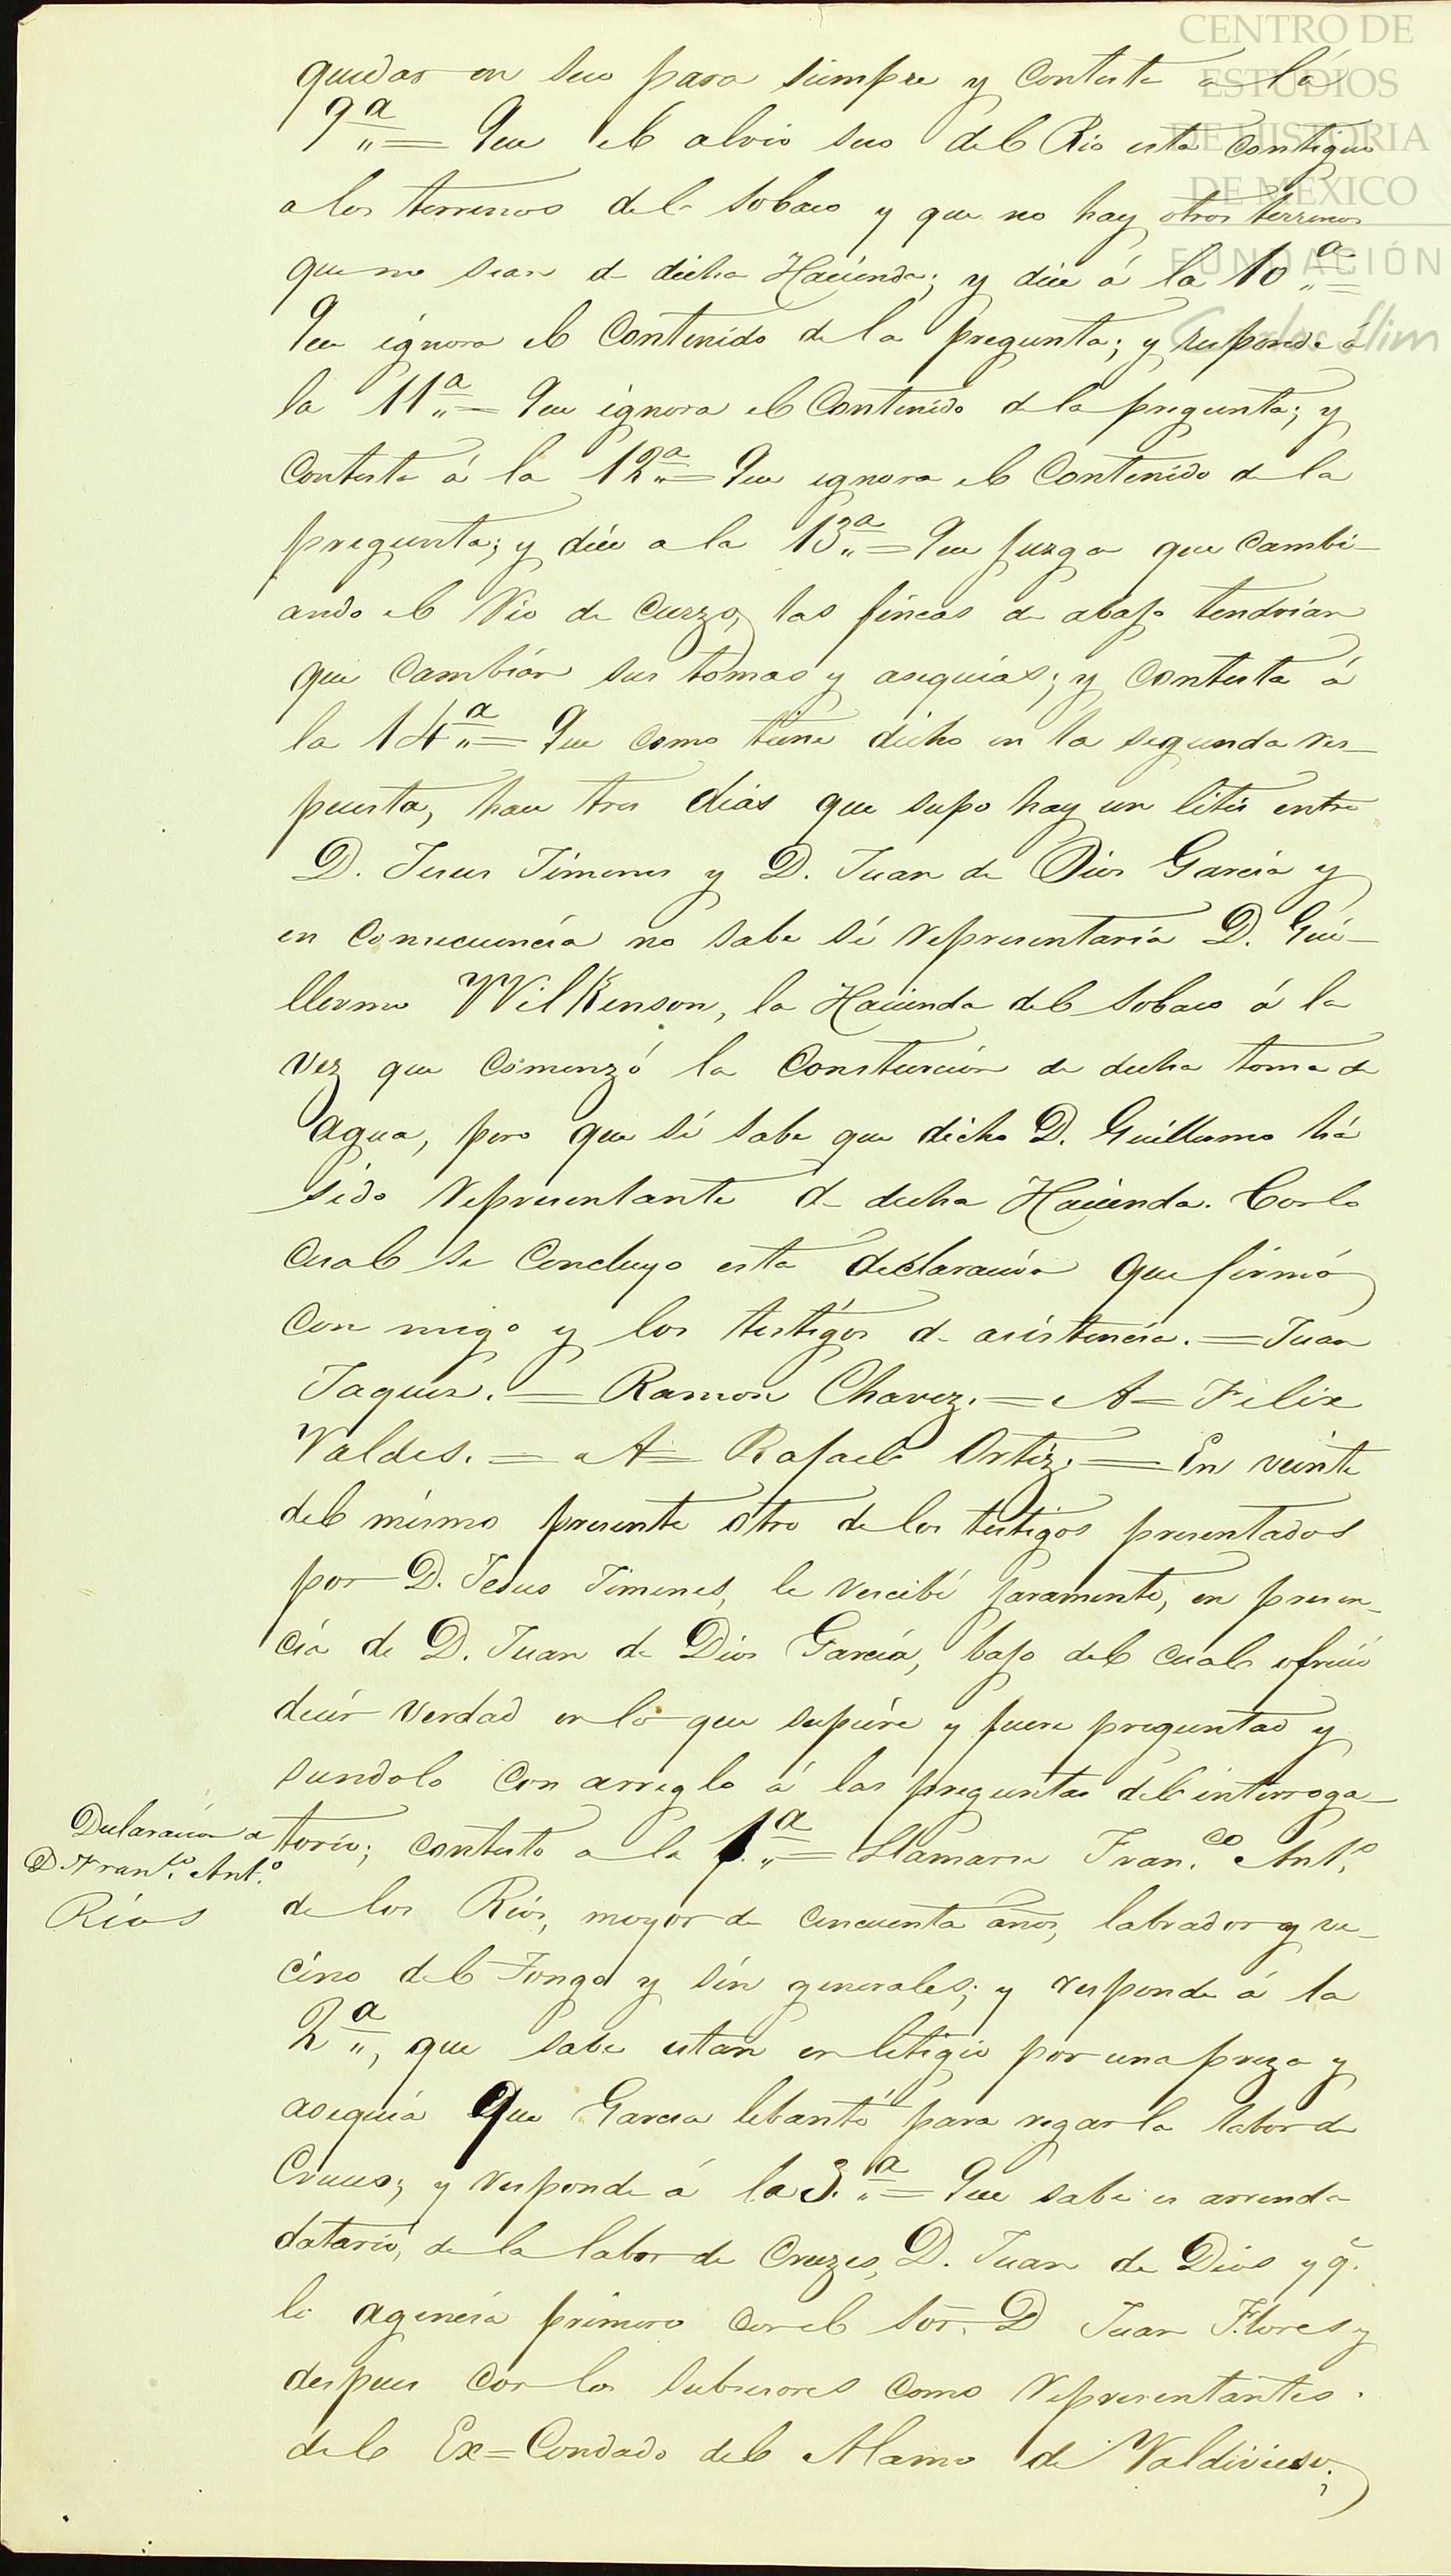 CENTRO DE
ESTUDIOS
DE HISTORIA
DE MÉXICO
FUNDACIÓN
Carlos Slim
quedar en seco para siempre y contesta a lá
9ª = Que el alvio seco del Rio esta contiguo
a los terrenos del Sobaco y que no hay otros terrenos
que no sean de dicha Hacienda; y dice á la 10ª =
Que ignora el contenido de la pregunta; y responde á
la 11ª = Que ignora el Contenido de la pregunta; y
contesta á la 12ª = Que ignora el Contenido de la
pregunta; y dice a la 13ª = Que juzga que cambi-
ando el Rio de curzo, las fincas de abajo tendrian
que cambiar sus tomas y asequias; y contesta á
la 14ª = Que como tiene dicho en la segunda res-
puesta, hace tres dias que supo hay un litis entre
D. Jesus Jimenes y D. Juan de Dios Garcia y
en consecuencia no sabe sí representaria D. Gui-
llermo Wilkenson, la Hacienda del Sobaco á la
vez que comenzó la Consturcion de dicha toma de
agua, pero que sí sabe que dicho D. Guillermo há
sido representante de dicha Hacienda. Con lo
cual se concluyo esta declaracion que firmó
con migo y los testigos de asistencia. = Juan
Jaques. = Ramon Chavez. = A = Felix
Valdes. = A = Rafael Ortiz. = En veinte
del mismo presente otro de los testigos presentados
por D. Jesus Jimenes, le recibí juramento, en presen-
cia de D. Juan de Dios Garcia, bajo del cual ofreció
decir verdad en lo que supiere y fuere preguntad y
siendolo con arreglo á las preguntas del interroga-
Declaracion de
D. Fran.co Ant.o
Rios
torio; contesto a la 1ª = Llamarse Fran.co Ant.o
de los Rios, mayor de cincuenta años, labrador y ve-
cino del Tongo y sin generales; y responde á la
2ª, que sabe estan en litigio por una preza y
asequia Que Garcia lebantó para regar la labor de
Cruces; y responde á la 3.ª = Que sabe es arrenda
datario, de la labor de Cruzes, D. Juan de Dios y q.
lo agencia primero con el Sor. D Juan Flores y
despues con los subcesores como representantes
del Ex=Condado del Alamo de Valdivieso;